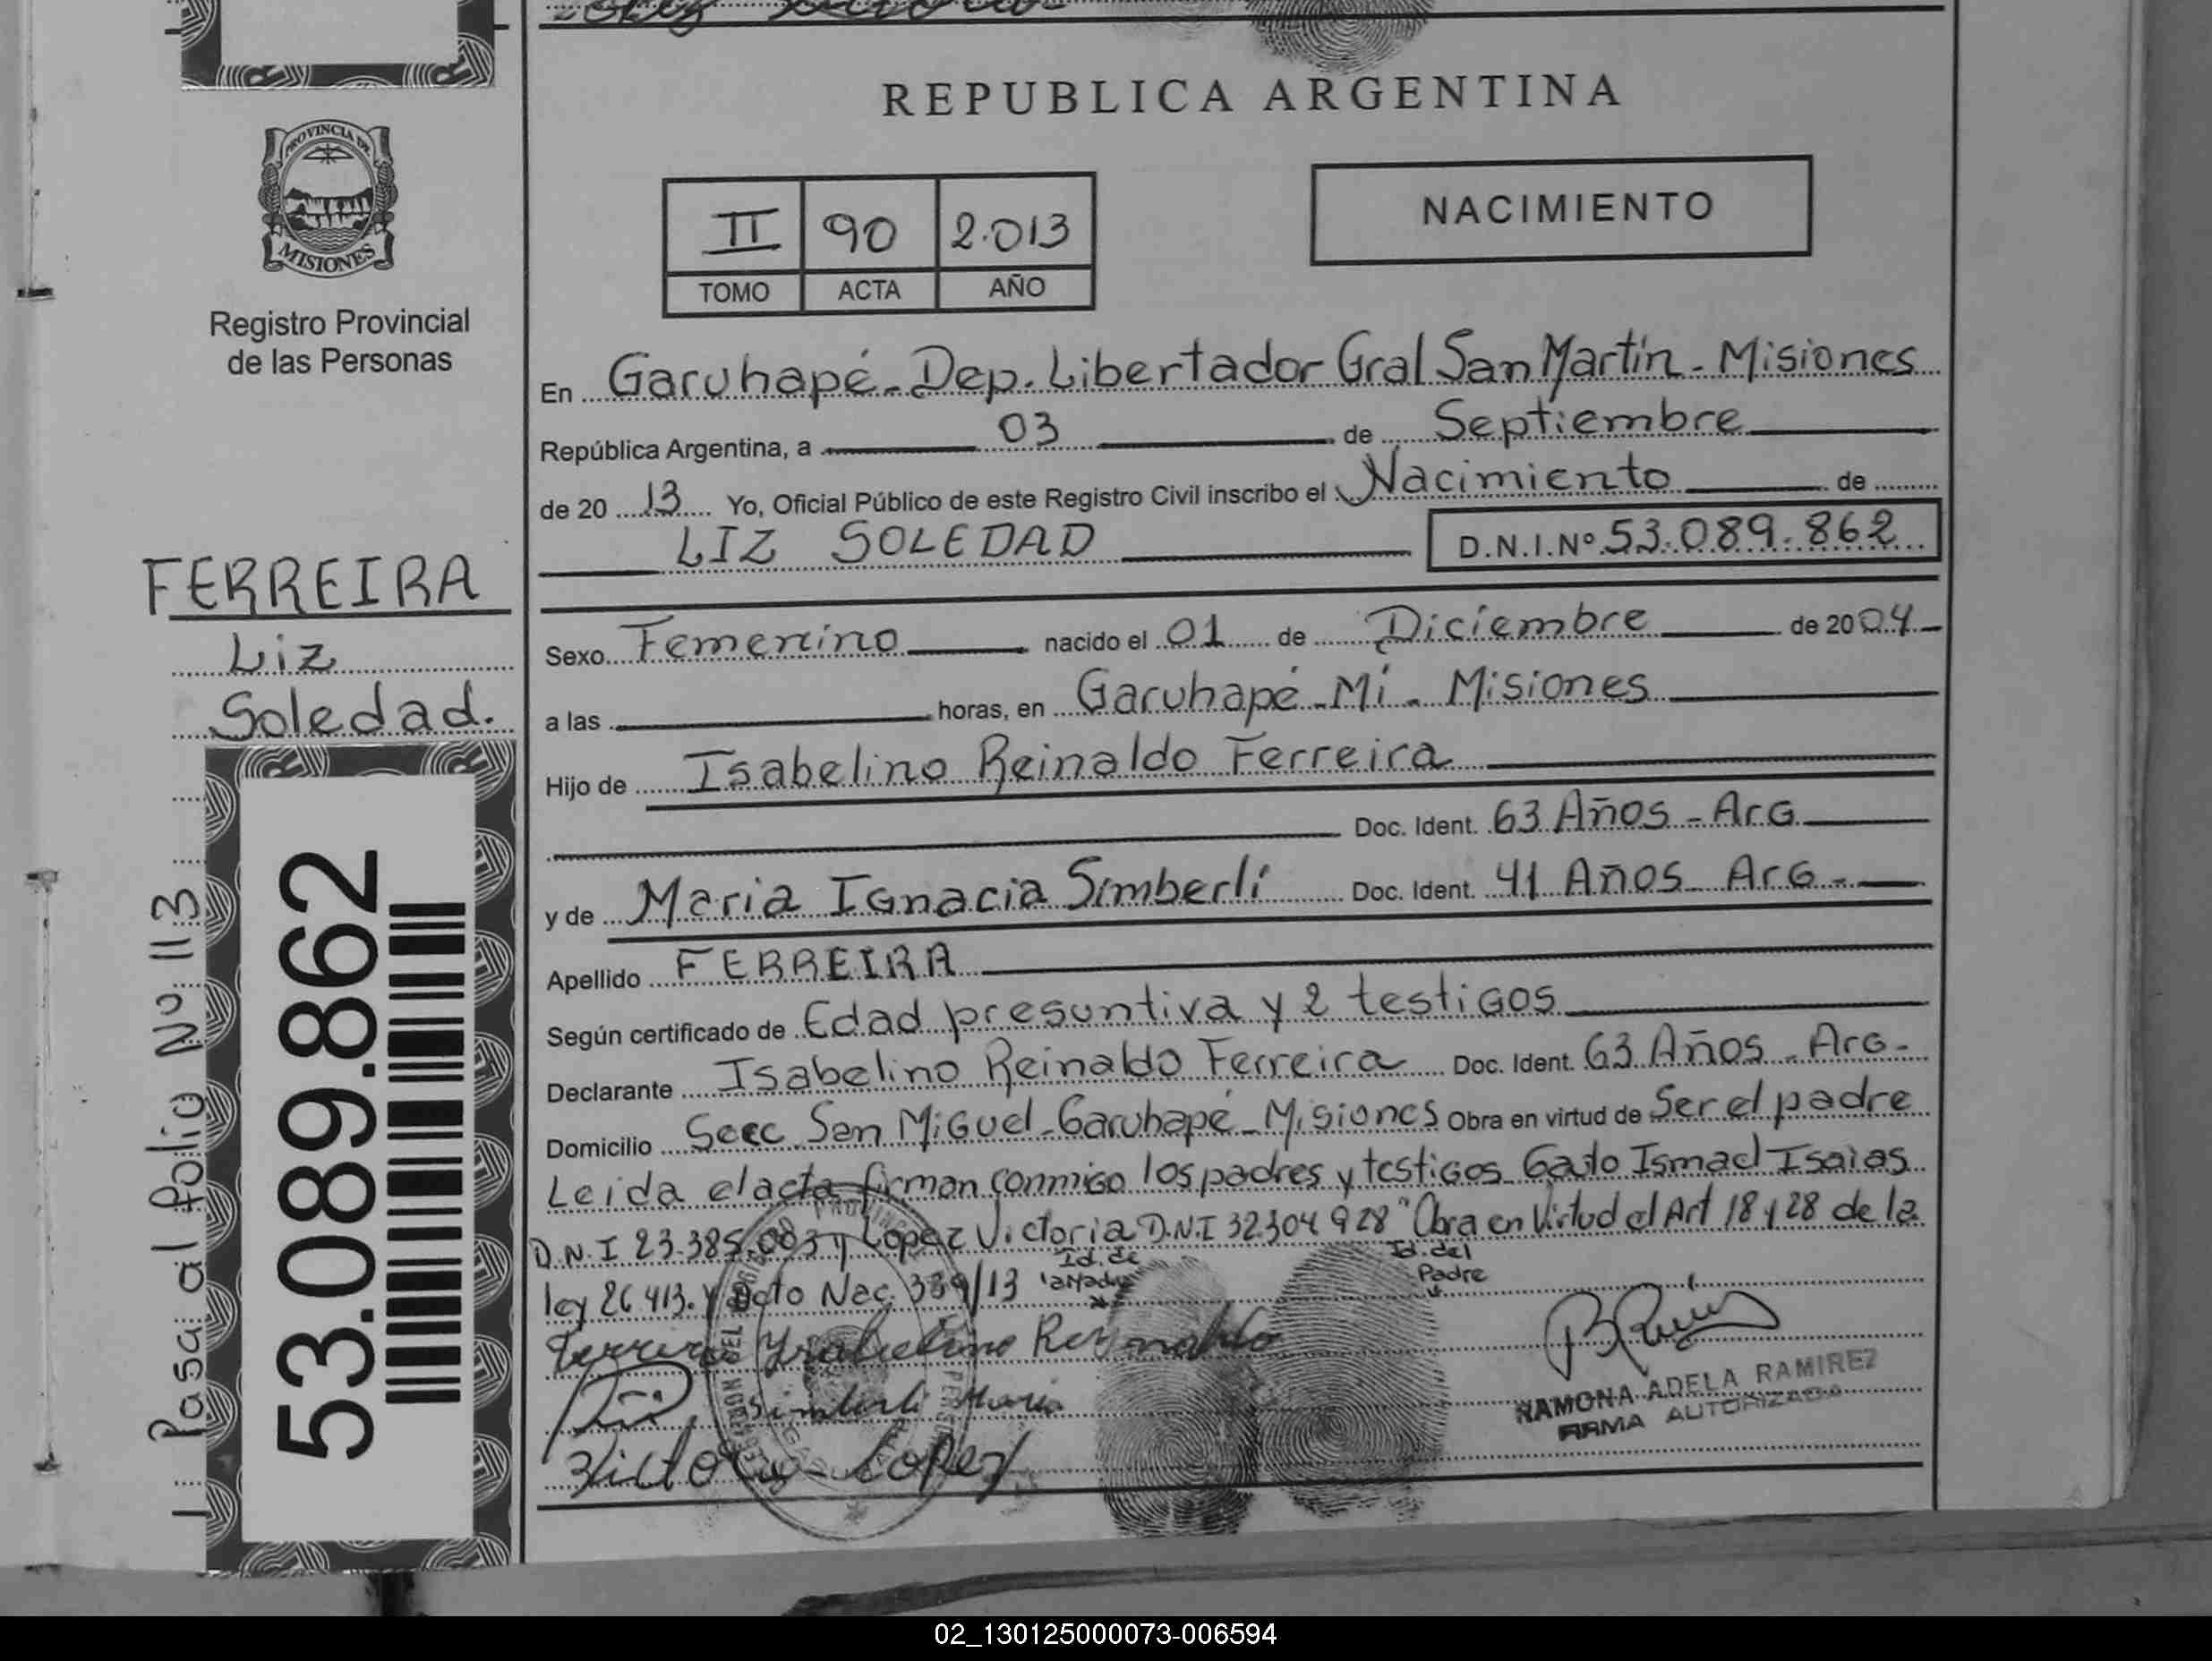 REPUBLICA ARGENTINA
PROVINCIA DE
MISIONES
Registro Provincial
de las Personas
II 90 2.013
TOMO ACTA AÑO
NACIMIENTO
En Garuhapé - Dep. Libertador Gral San Martín - Misiones
República Argentina, a 03 de Septiembre
de 20 13 Yo, Oficial Público de este Registro Civil inscribo el Nacimiento de
LIZ SOLEDAD D.N.I.Nº 53.089.862
FERREIRA
Liz
Soledad.
Sexo Femenino nacido el 01 de Diciembre de 2004
a las horas, en Garuhapé - Mí - Misiones
Hijo de Isabelino Reinaldo Ferreira
Doc. Ident. 63 Años - ArG
y de Maria IGnacia Simberli Doc. Ident. 41 Años - ArG -
Apellido FERREIRA
Según certificado de Edad presuntiva y 2 testiGos
Declarante Isabelino Reinaldo Ferreira Doc. Ident. 63 Años - ArG -
Domicilio Secc San MiGuel - Garuhapé - Misiones Obra en virtud de Ser el padre
Leida el acta firman conmiGo los padres y testiGos Ismael Isaias
D.N.I 23.385.003 y Lopez Victoria D.N.I 32304928 "Obra en Virtud el Art 18 y 28 de la
ley 26413. y Dcto Nac. 339/13
Id. de la Madre
Id. del Padre
Ferreira Ysabelino Reynaldo
Simberli Maria
Victoria Lopez
RAMONA ADELA RAMIREZ
FIRMA AUTORIZADA
Pasa al folio Nº 113
53.089.862
02_130125000073-006594